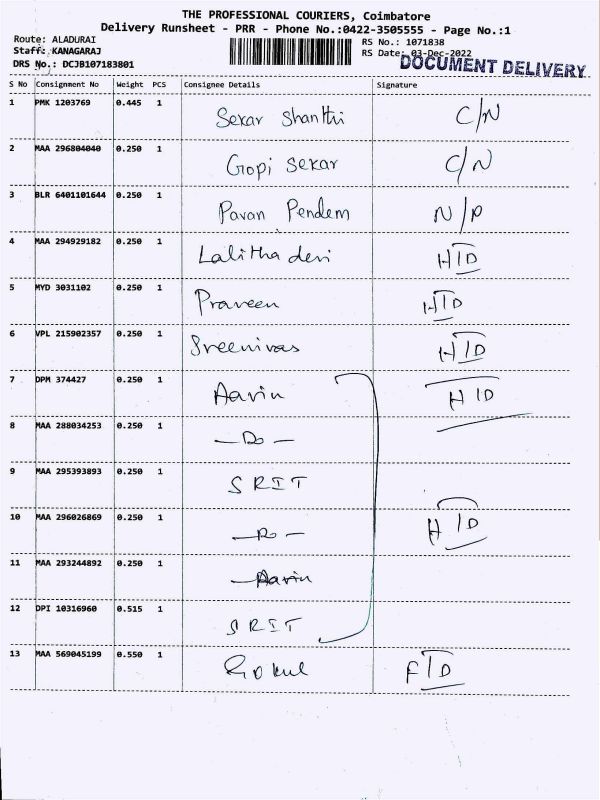 THE PROFESSIONAL COURIERS, Coimbatore
Delivery Runsheet - PRR - Phone No.:0422-3505555 - Page No.:1
Route: ALADURAI
RS No.: 1071838
Staff: KANAGARAJ
RS Date: 03-Dec-2022
DRS No.: DCJB107183801
DOCUMENT DELIVERY
S No Consignment No Weight PCS Consignee Details Signature
1 PMK 1203769 0.445 1 Sekar Shanthi C/N
2 MAA 296804040 0.250 1 Gopi Sekar C/N
3 BLR 6401101644 0.250 1 Pavan Pendem N/P
4 MAA 294929182 0.250 1 Lalitha devi H/D
5 MYD 3031102 0.250 1 Praveen H/D
6 VPL 215902357 0.250 1 Sreenivas H/D
7 DPM 374427 0.250 1 Aarin H/D
8 MAA 288034253 0.250 1 — Do —
9 MAA 295393893 0.250 1 SRIT
10 MAA 296026869 0.250 1 — Do — H/D
11 MAA 293244892 0.250 1 Aarin
12 DPI 10316960 0.515 1 SRIT
13 MAA 569045199 0.550 1 Gokul F/D